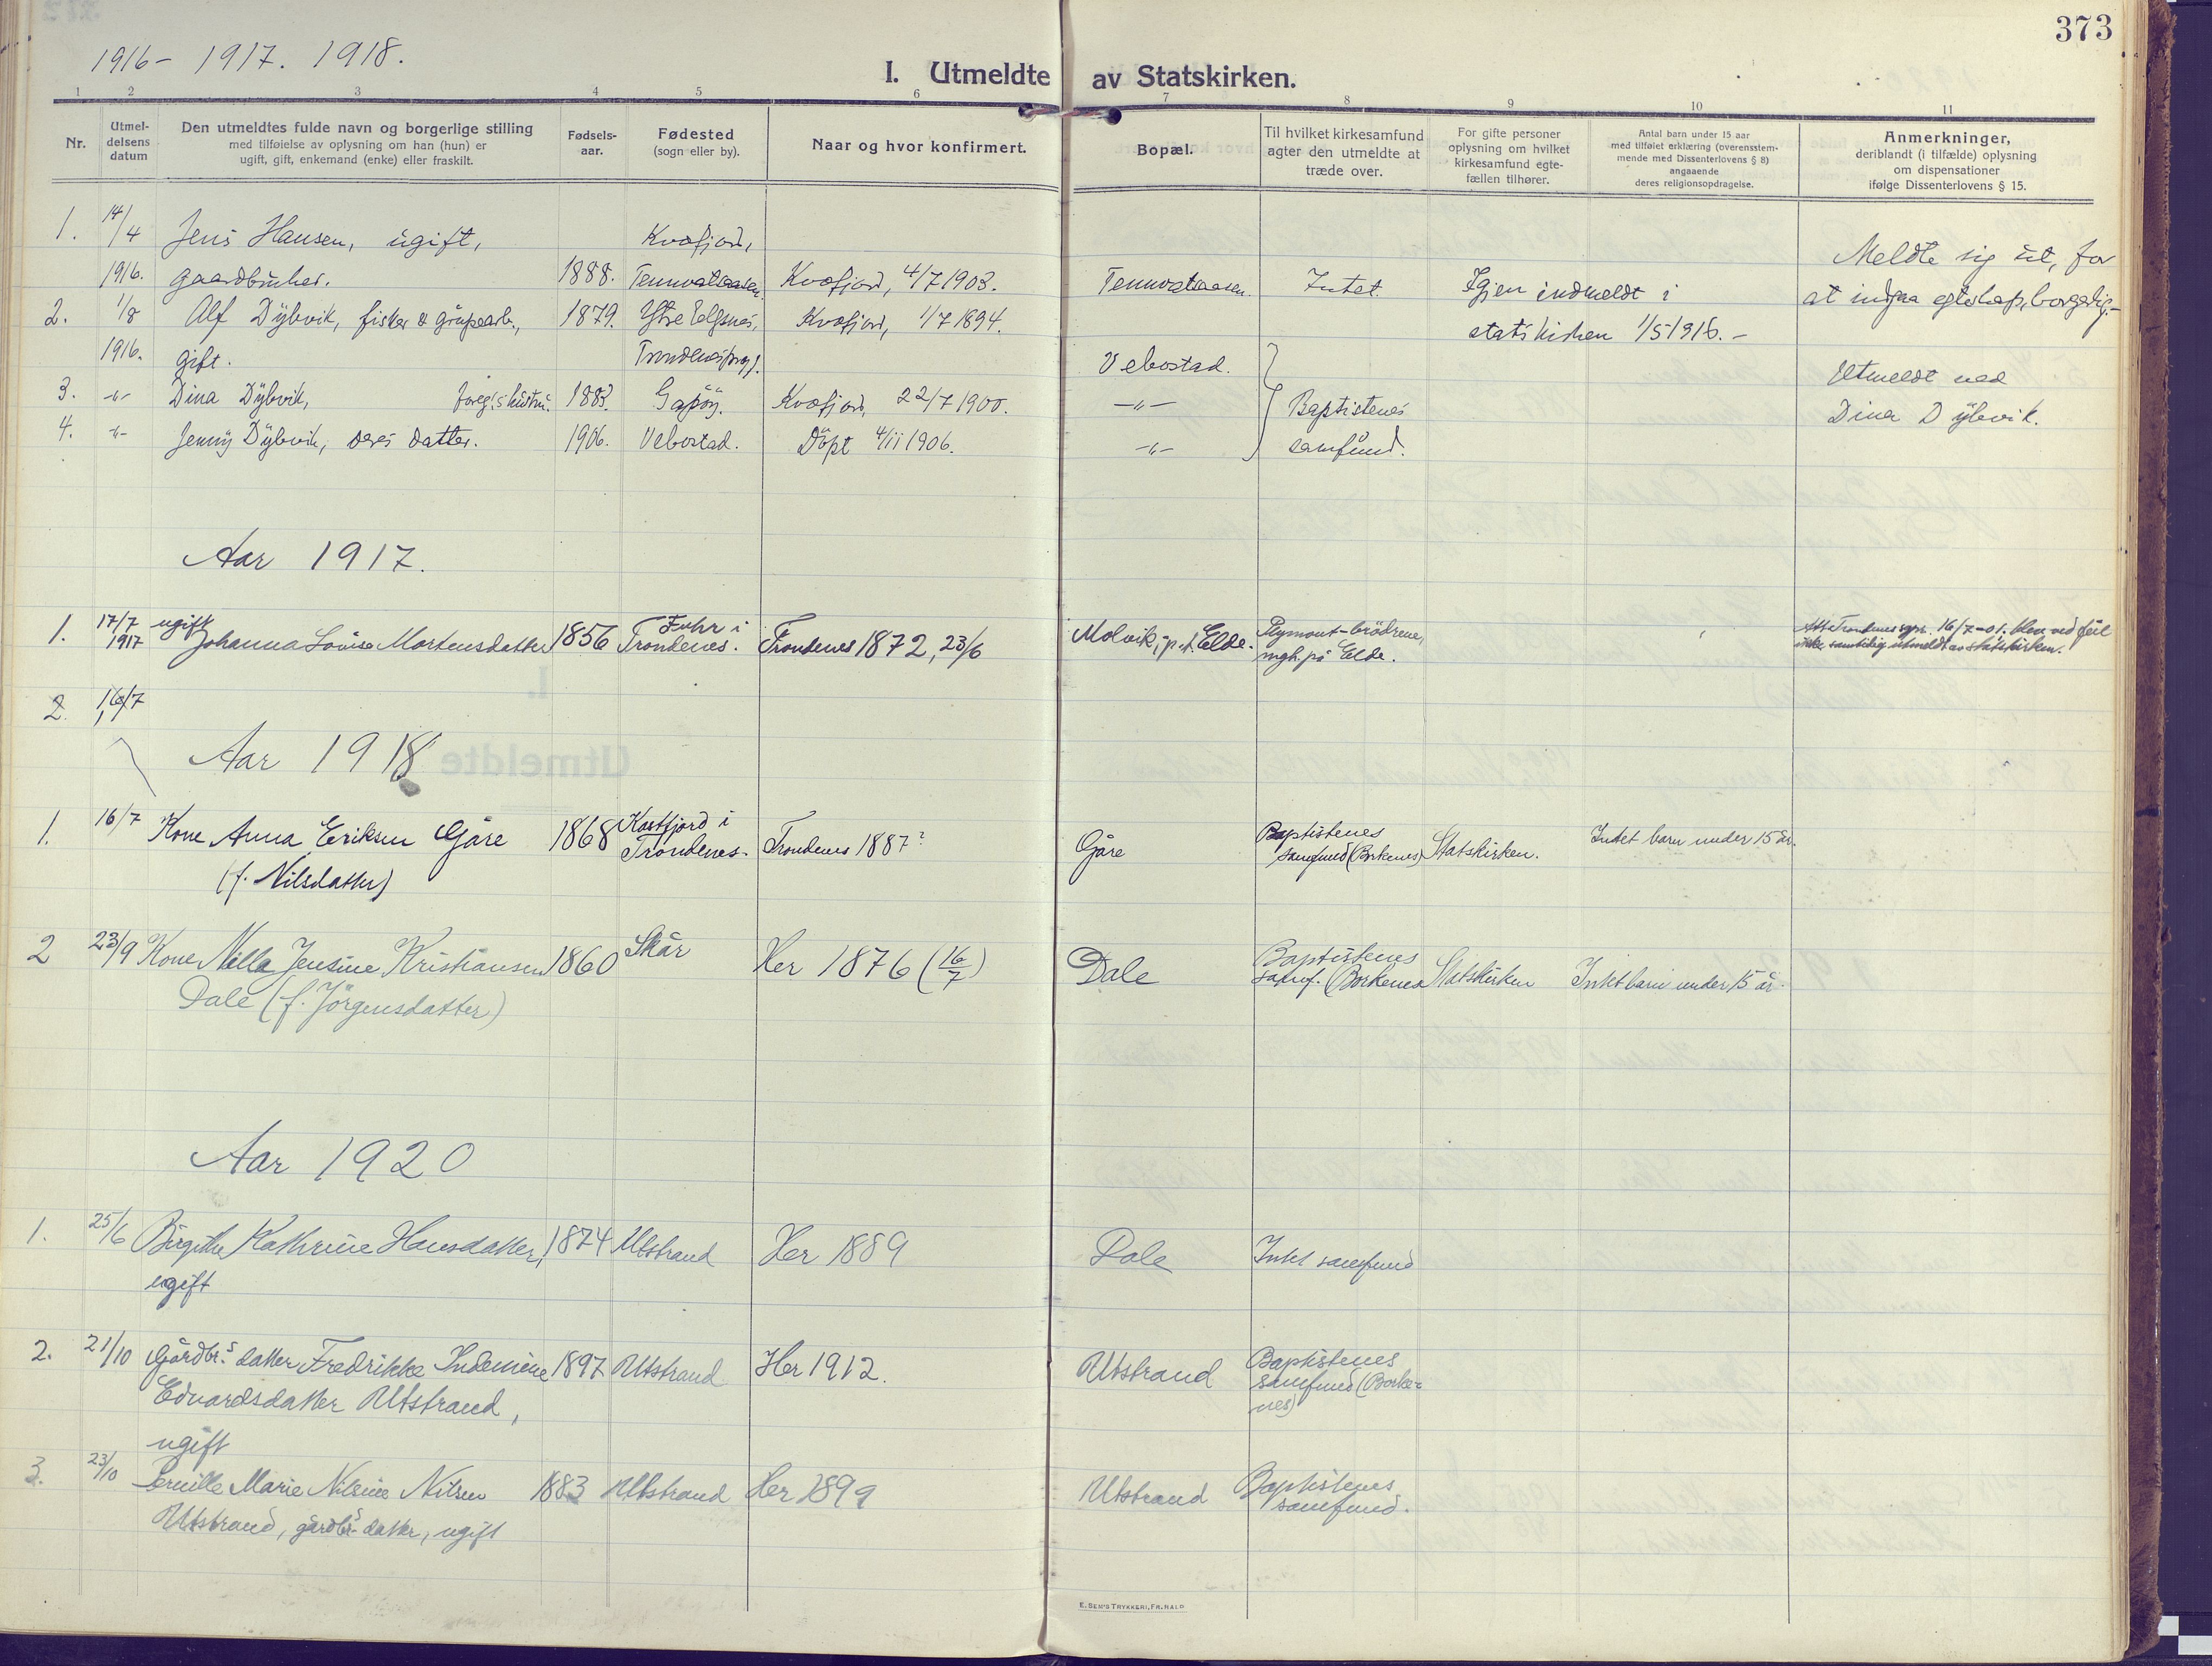 373
1916- 1917. 1918.
I. Utmeldte av Statskirken.
1 2 3 4 5 6 7 8 9 10 11
Nr.
Utmel-
delsens
datum
Den utmeldtes fulde navn og borgerlige stilling
med tilføielse av oplysning om han (hun) er
ugift, gift, enkemand (enke) eller fraskilt.
Fødsels-
aar.
Fødested
(sogn eller by).
Naar og hvor konfirmert.
Bopæl.
Til hvilket kirkesamfund
agter den utmeldte at
træde over.
For gifte personer
oplysning om hvilket
kirkesamfund egte-
fællen tilhører.
Antal barn under 15 aar
med tilføiet erklæring (overensstem-
mende med Dissenterlovens § 8)
angaaende
deres religionsopdragelse.
Anmerkninger,
deriblandt (i tilfælde) oplysning
om dispensationer
ifølge Dissenterlovens § 15.
1. 14/4 Jens Hansen, ugift, Kvæfjord, Meldte sig ut, for
1916. gaardbruker. 1888. Tennvatsaasen. Kvæfjord, 4/7 1903. Tennvatsaasen. Intet. Igjen indmeldt i at indgaa egteskap, borgerlig.-
2. 1/8 Alf Dybvik, fisker & grupearb., 1879. Ytre Elgsnes, Kvæfjord, 1/7 1894. statskirken 1/5 1916. -
1916. gift. Trondenes Vebostad. Utmeldt med
3. -"- Dina Dybvik, foreg.s hustru. 1883. Gapøy. Kvæfjord, 22/7 1900. -"- Baptistenes Dina Dybvik.
4. -"- Jenny Dybvik, deres datter. 1906. Vebostad. Döpt 4/11 1906. -"- samfund.
Aar 1917.
1. 17/7 ugift Fuhr i Plymout-brödrene,
1917 Johanna Lovise Mortensdatter 1856 Trondenes. Trondenes 1872, 23/6 Molvik, p.t. Elde. mgh. på Elde. 16/7-01. blev ved feil
ikke samtidig utmeldt av statskirken.
2. 16/7
Aar 1918
1. 16/7 Kone Anna Eriksen Gåre 1868 Kastfjord i Trondenes. Trondenes 1887? Gåre Baptistenes samfund (Borkenes) Statskirken. Intet barn under 15 år.
(f. Nilsdatter)
2 23/9 Kone Nella Jensine Kristiansen 1860 Skår Her 1876 (16/7) Dale Baptistenes samf. (Borkenes Statskirken Intet barn under 15 år.
Dale (f. Jörgensdatter)
Aar 1920
1. 25/6 Birgithe Kathrine Hansdatter, 1874 Utstrand Her 1889 Dale Intet samfund
ugift
2. 21/10 Gårdbr.s datter Fredrikke Indemine 1897 Utstrand Her 1912. Utstrand Baptistenes
Edvardsdatter Utstrand, samfund (Borke-
nes)
ugift
3. 23/10 Pernille Marie Nilsine Nilsen 1883 Utstrand Her 1899 Utstrand Baptistenes
Utstrand, gårdbr.s datter, ugift samfund.
E. SEM'S TRYKKERI, FR.HALD